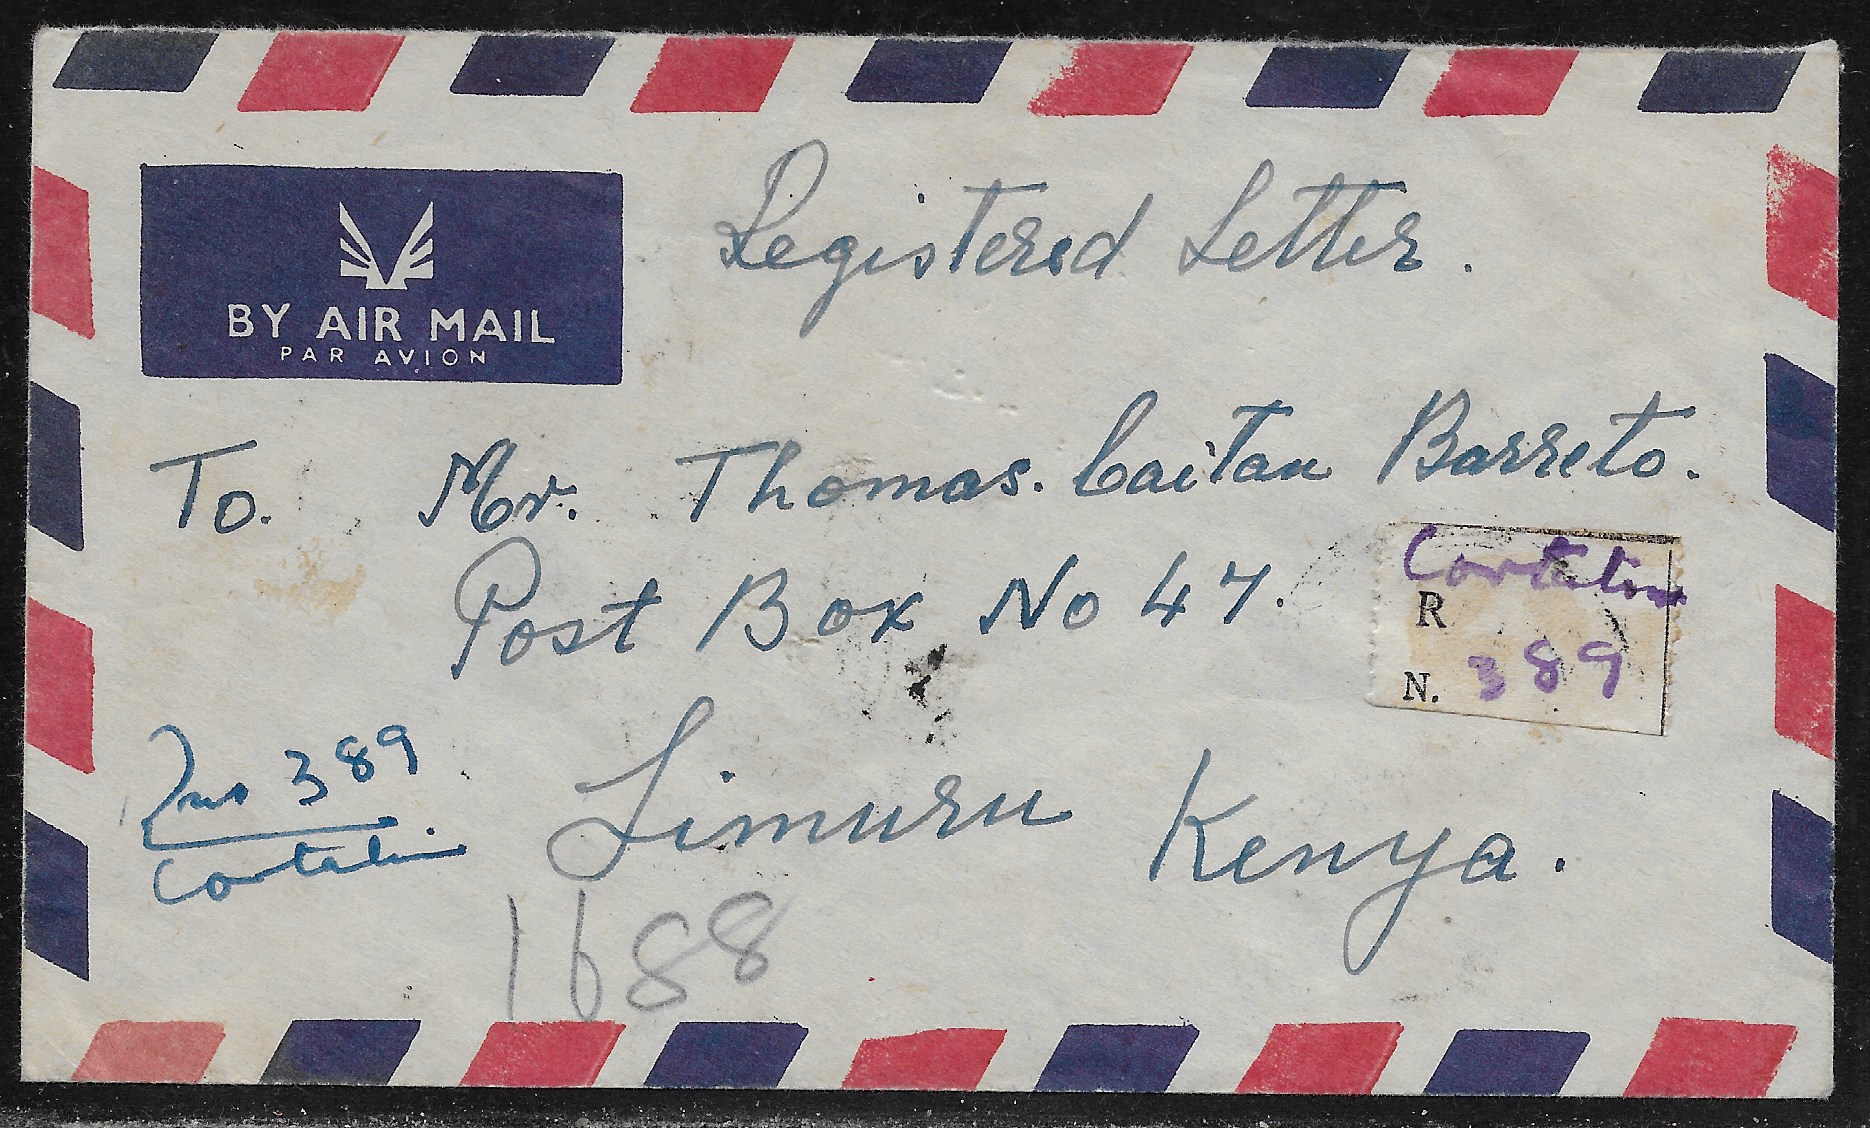 Registered Letter.
BY AIR MAIL
PAR AVION
To. Mr. Thomas. Caitan Barreto.
Post Box No 47.
Cortalim
R
N. 389
Limuru Kenya.
No 389
Cortalim
1688